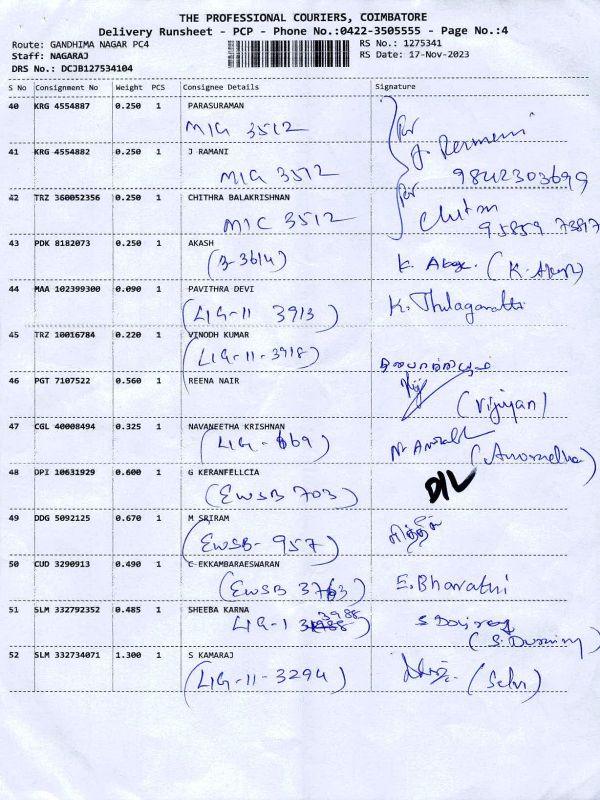 THE PROFESSIONAL COURIERS, COIMBATORE
Delivery Runsheet - PCP - Phone No.:0422-3505555 - Page No.:4
Route: GANDHIMA NAGAR PC4 RS No.: 1275341
Staff: NAGARAJ RS Date: 17-Nov-2023
DRS No.: DCJB127534104
S No Consignment No Weight PCS Consignee Details Signature
40 KRG 4554887 0.250 1 PARASURAMAN
MIG 3512
41 KRG 4554882 0.250 1 J RAMANI
MIG 3512 9842303699
42 TRZ 360052356 0.250 1 CHITHRA BALAKRISHNAN
MIG 3512 95859 73817
43 PDK 8182073 0.250 1 AKASH
(3-3614)
44 MAA 102399300 0.090 1 PAVITHRA DEVI
(LIG-11 3913) K. Thilagavathi
45 TRZ 10016784 0.220 1 VINODH KUMAR
(LIG-11-3918)
46 PGT 7107522 0.560 1 REENA NAIR
(Vijiyan)
47 CGL 40008494 0.325 1 NAVANEETHA KRISHNAN
(LIG- 169)
48 DPI 10631929 0.600 1 G KERANFELLCIA
(EWSB 703) D/L
49 DDG 5092125 0.670 1 M SRIRAM
(EWSB- 957)
50 CUD 3290913 0.490 1 C EKKAMBARAESWARAN
(EWSB 3763) E. Bharathi
51 SLM 332792352 0.485 1 SHEEBA KARNA
LIG-1 3988
52 SLM 332734071 1.300 1 S KAMARAJ
(LIG-11-3294) (Selvi)